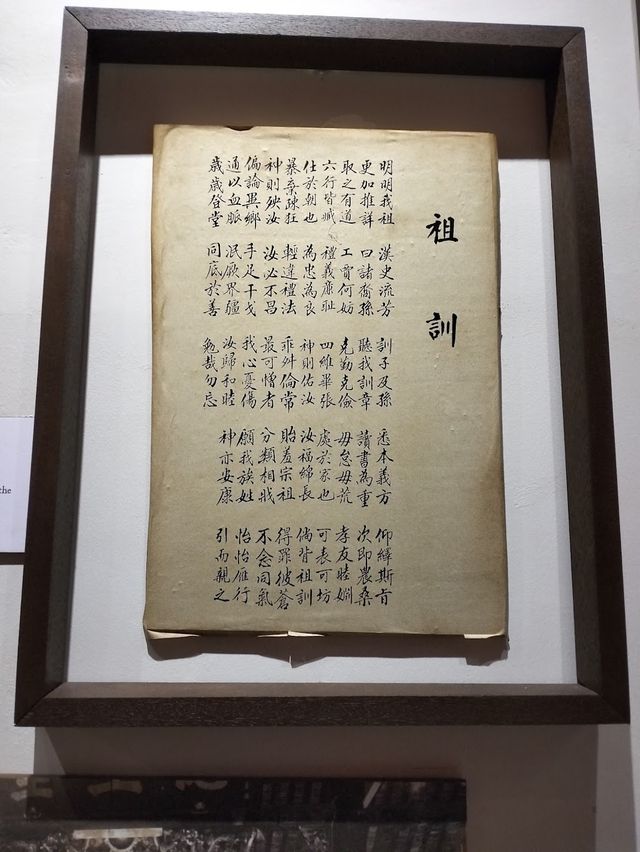 祖訓
明明我祖 漢史流芳 訓子及孫 悉本義方 仰繹斯旨
更加推詳 曰諸裔孫 聽我訓章 讀書為重 次即農桑
取之有道 工賈何妨 克勤克儉 毋怠毋荒 孝友睦婣
六行皆臧 禮義廉耻 四維畢張 處於家也 可表可坊
仕於朝也 為忠為良 神則佑汝 汝福綿長 倘背祖訓
暴棄疎狂 輕違禮法 乖舛倫常 貽羞宗祖 得罪彼蒼
神則殃汝 汝必不昌 最可憎者 分類相戕 不念同氣
偏論異鄉 手足干戈 我心憂傷 願我族姓 怡怡雁行
通以血脈 泯厥界疆 汝歸和睦 神亦安康 引而親之
歲歲登堂 同底於善 勉哉勿忘
the